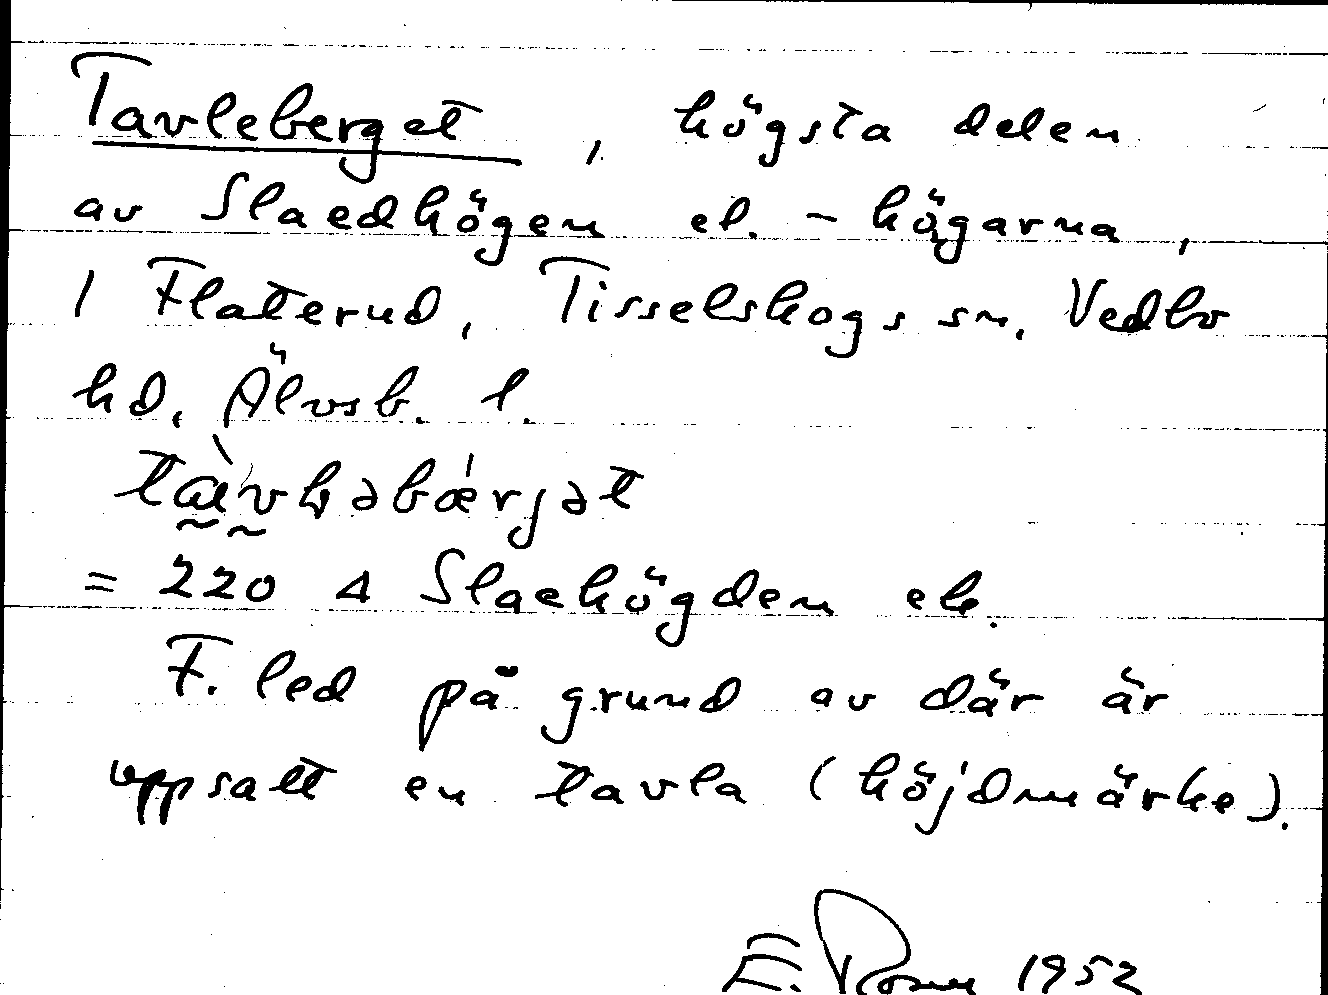 Tavleberget, högsta delen
av Slaedhögen el. -högarna,
i Flaterud, Tisselskogs sn, Vedbo
hd, Älvsb. l.
= 220 Δ Slaehögden ek.
F. led på grund av där är
uppsatt en tavla (höjdmärke).
E. 1952